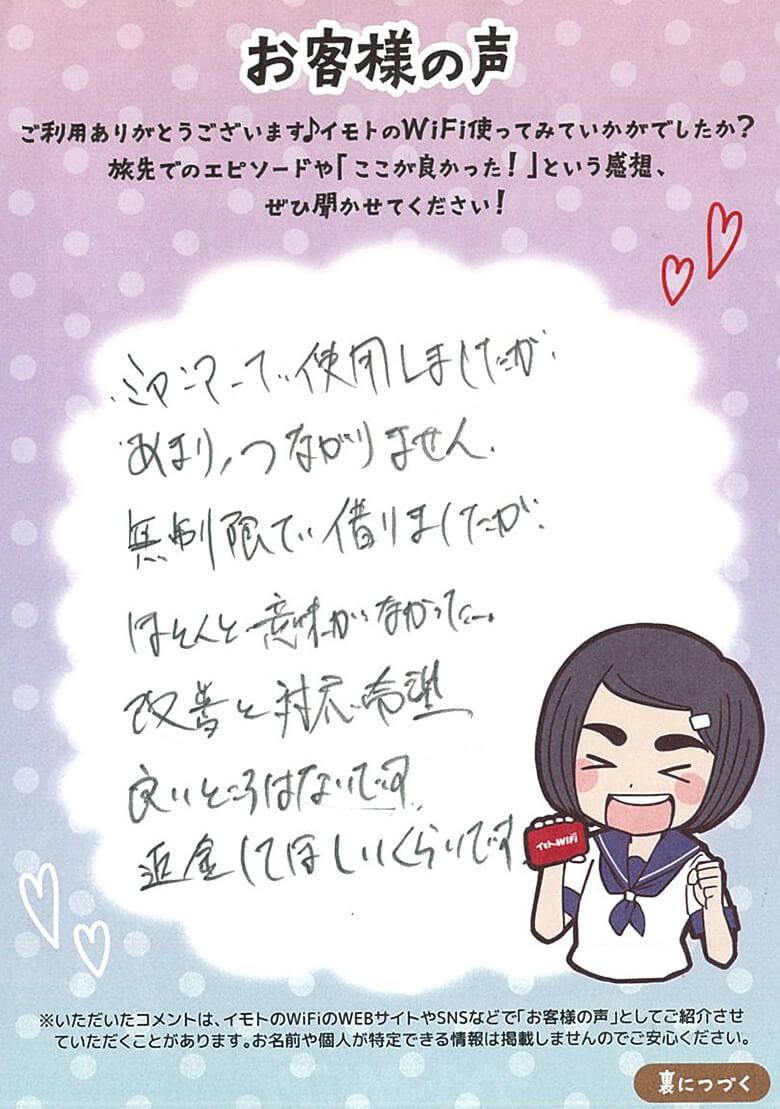 お客様の声
ご利用ありがとうございます♪イモトのWiFi使ってみていかがでしたか?
旅先でのエピソードや「ここが良かった!」という感想、
ぜひ聞かせてください!
ミャンマーで使用しましたが、
あまり、つながりません。
無制限で借りましたが、
ほとんど意味がなかった。
改善と対応希望
良いところはないです。
返金してほしいくらいです。
イモトのWiFi
※いただいたコメントは、イモトのWiFiのWEBサイトやSNSなどで「お客様の声」としてご紹介させ
ていただくことがあります。お名前や個人が特定できる情報は掲載しませんのでご安心ください。
裏につづく